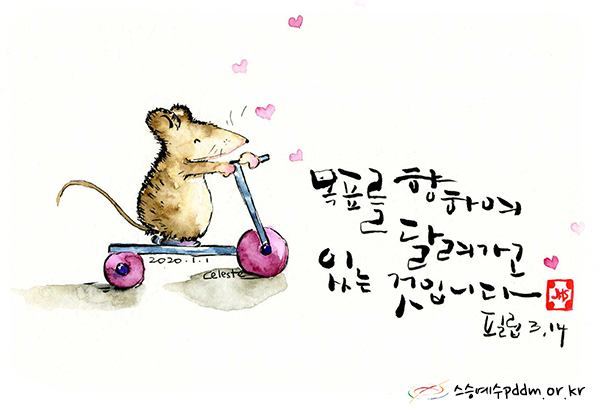 목표를 향하여
달려가고
있는 것입니다
필립 3,14
2020.1.1
celeste
JHS
스승예수pddm.or.kr